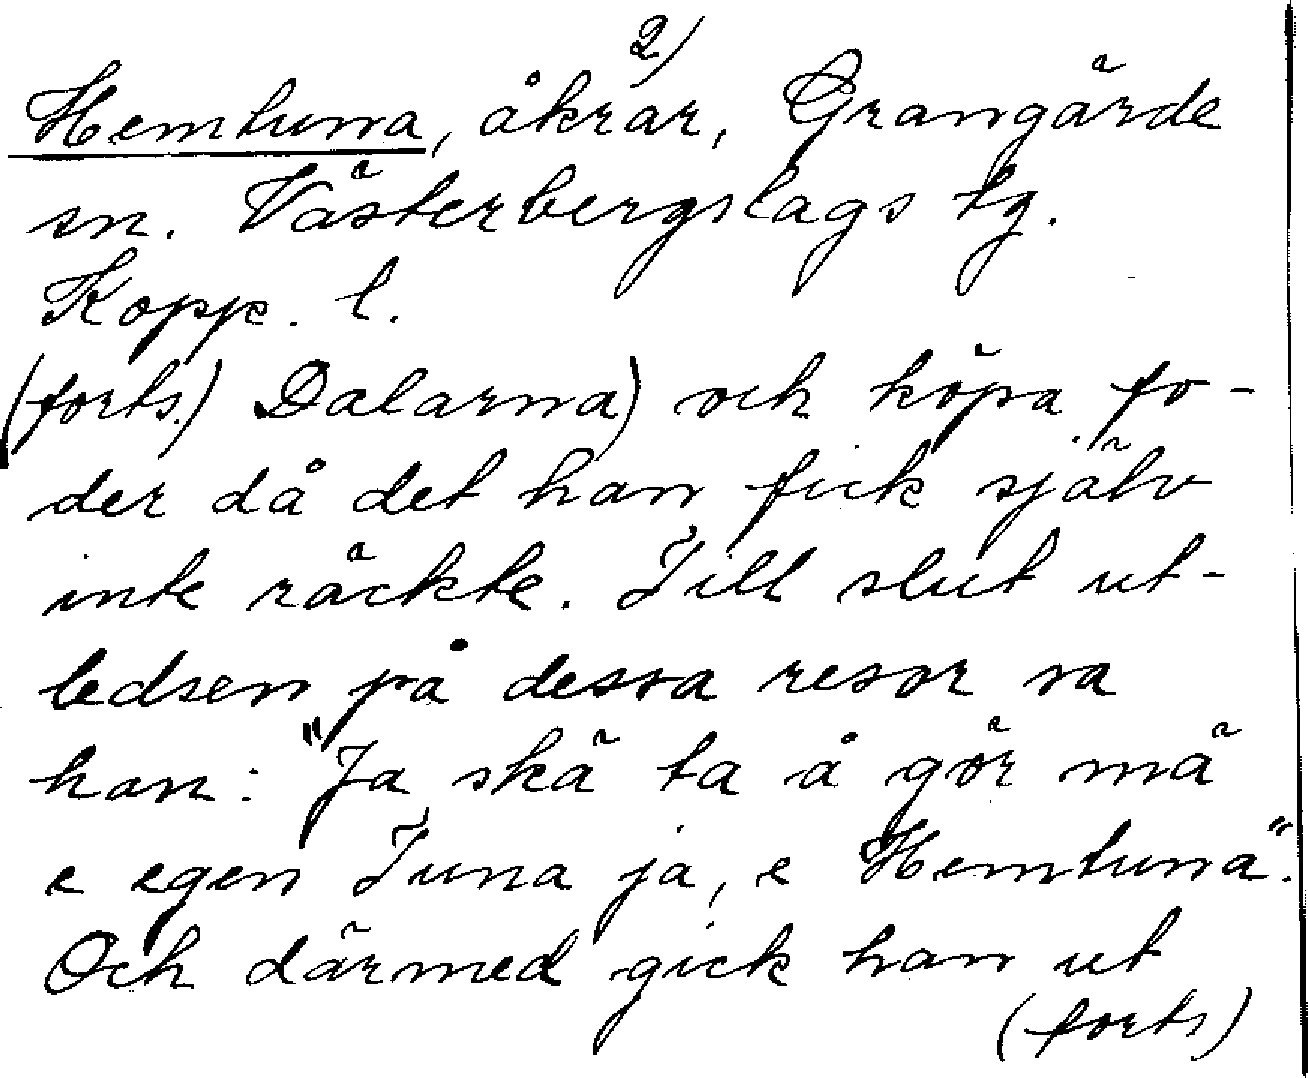 2)
Hemtuna, åkrar, Grangärde
sn. Västerbergslags tg.
Kopp. l.
(forts.) Dalarna) och köpa fo-
der då det han fick själv
inte räckte. Till slut ut-
ledsen på dessa resor sa
han: "Ja skä ta å gör mä
e egen Tuna ja, e Hemtuna".
Och därmed gick han ut
(forts)